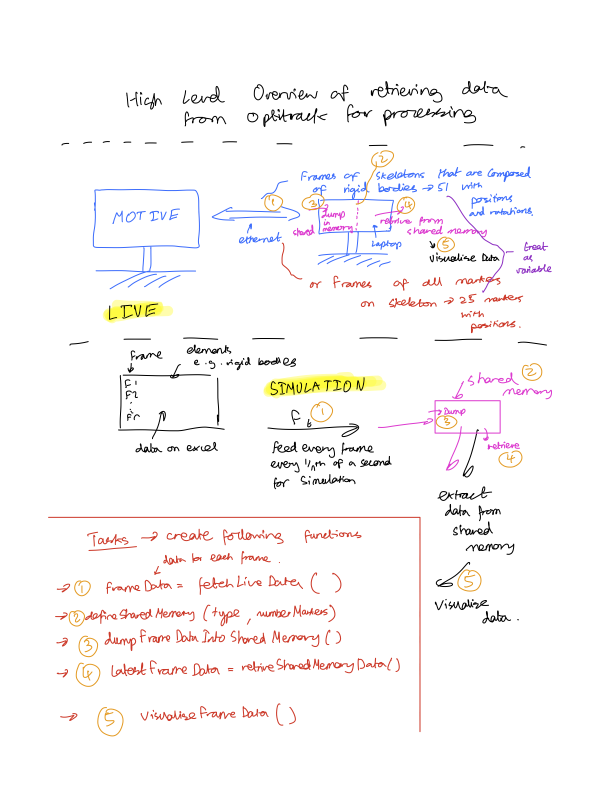 High Level Overview of retrieving data
from Optitrack for processing
②
Frames of skeletons that are composed
of rigid bodies → 51 with
positions
and rotations.
①
③
④
MOTIVE
dump
in
memory
shared
retrive from
shared memory
ethernet
Laptop
⑤
Visualise Data
treat
as
variable
or Frames of all markers
on skeleton → 25 markers
with
positions.
LIVE
Frame
elements
e.g. rigid bodies
F1
F2
:
Fn
data on excel
SIMULATION
①
feed every frame
every 1/nth of a second
for Simulation
shared ②
memory
Dump
③
retrieve
④
extract
data from
shared
memory
⑤
Visualise
data.
Tasks → create following functions
data for each frame.
→ ① frameData = fetchLiveData ( )
→ ② defineSharedMemory (type, numberMarkers)
→ ③ dumpFrameDataIntoSharedMemory()
→ ④ latestFrameData = retriveSharedMemoryData()
→ ⑤ visualiseFrameData ( )